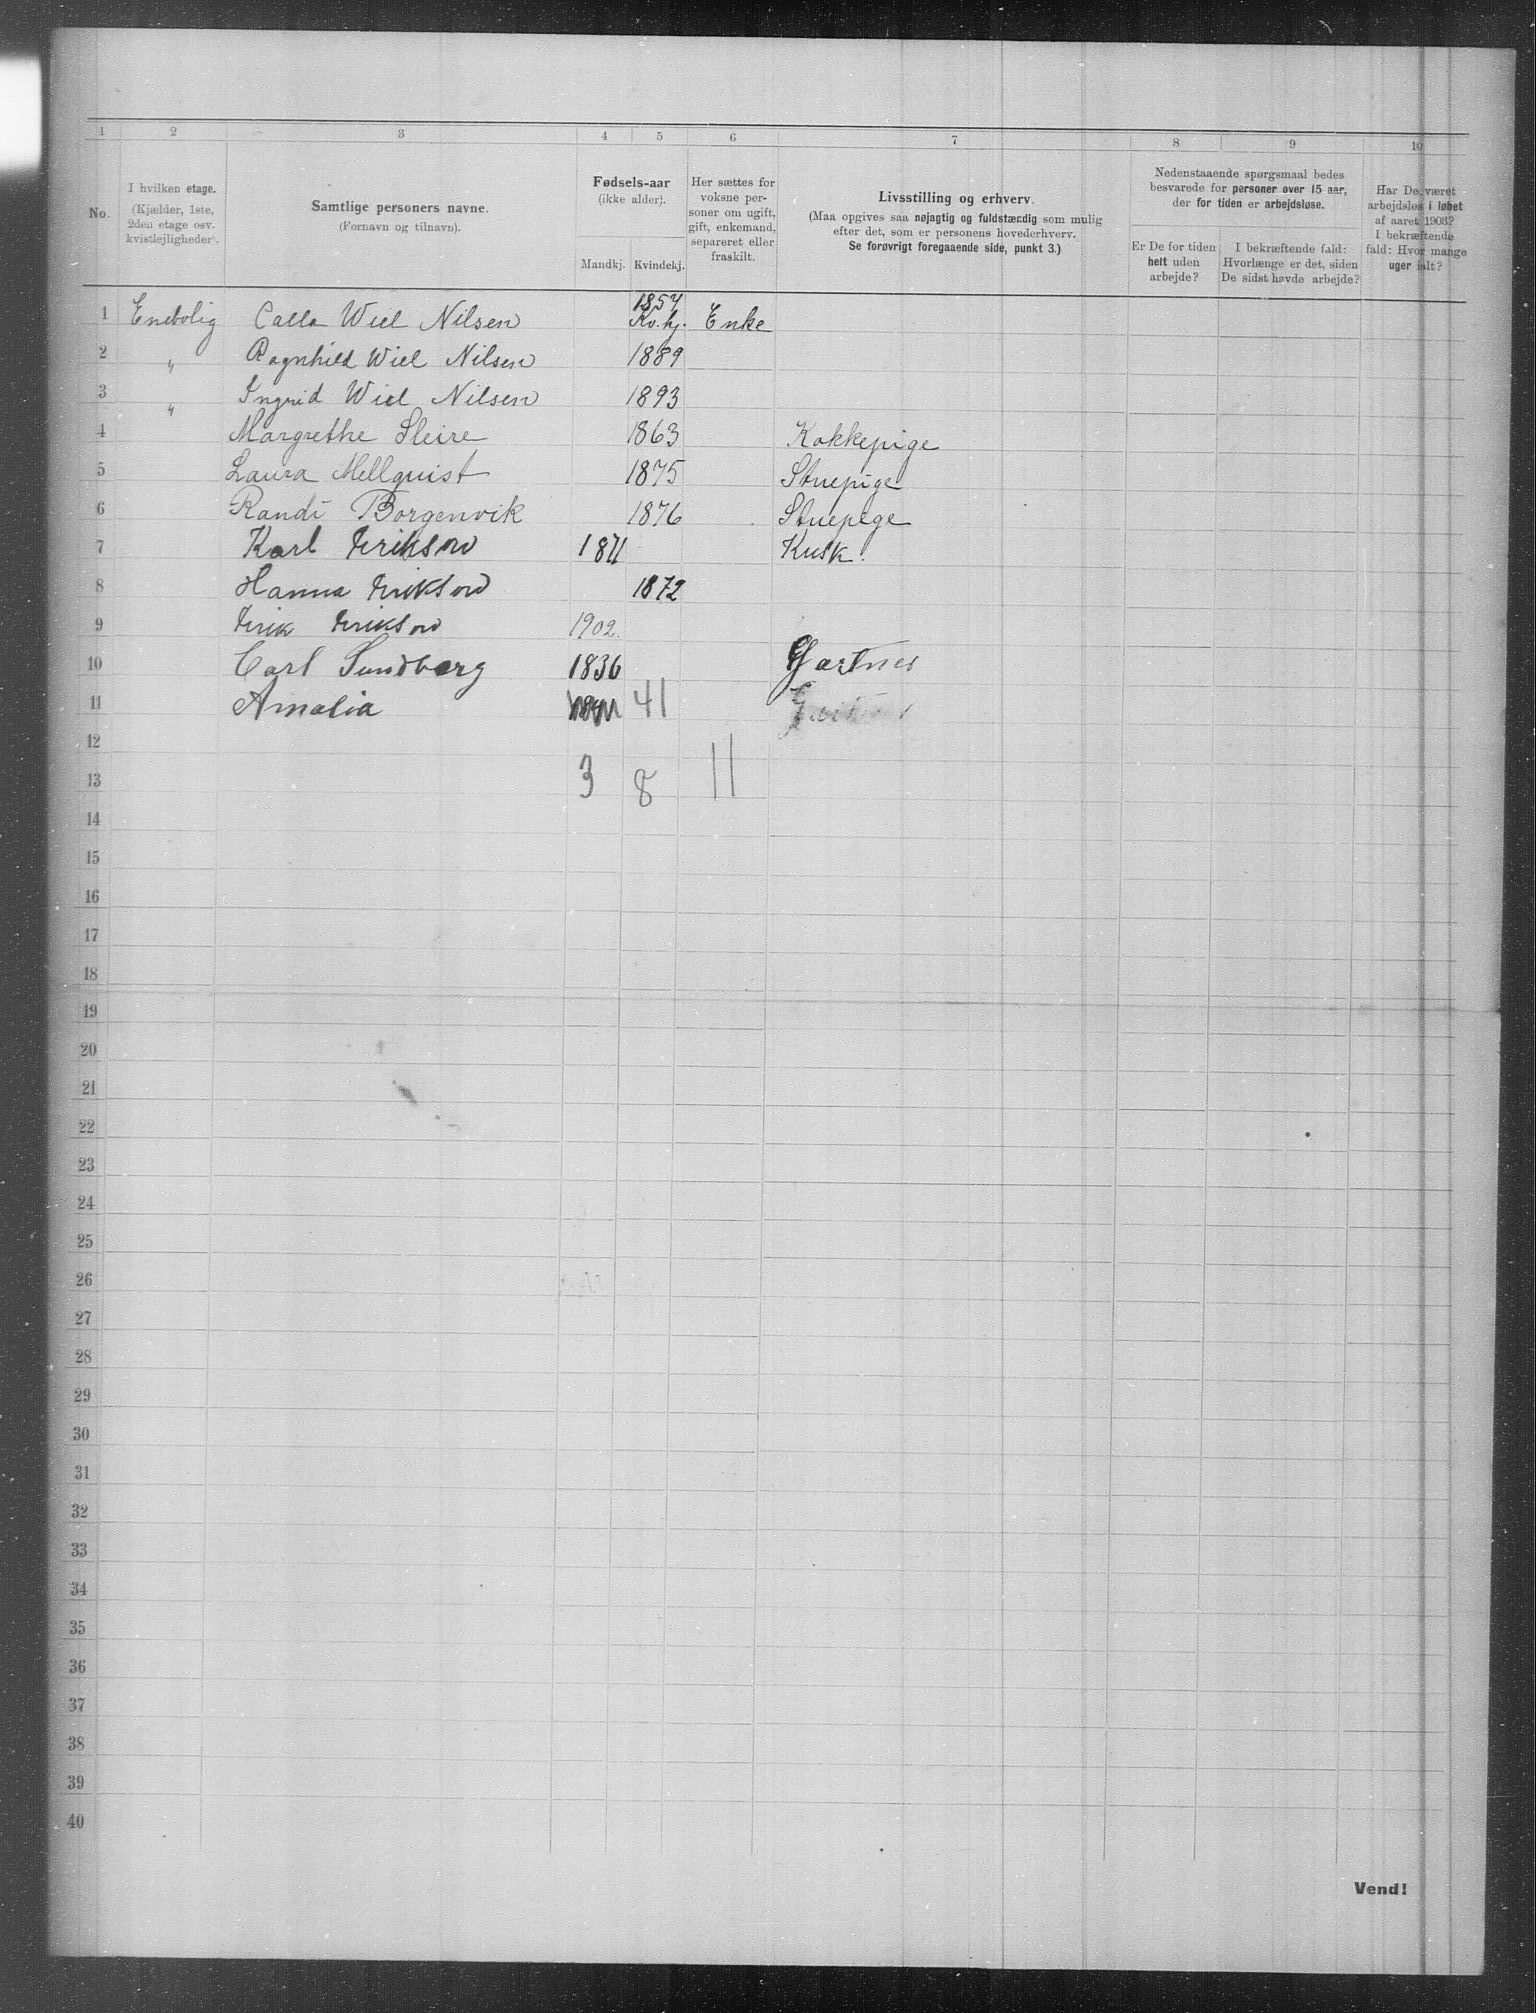 1 2 3 4 5 6 7 8 9 10
No.
I hvilken etage.
(Kjælder, 1ste,
2den etage osv.
kvistlejligheder).
Samtlige personers navne.
(Fornavn og tilnavn).
Fødsels-aar
(ikke alder).
Mandkj. Kvindekj.
Her sættes for
voksne per-
soner om ugift,
gift, enkemand,
separeret eller
fraskilt.
Livsstilling og erhverv.
(Maa opgives saa nøjagtig og fuldstændig som mulig
efter det, som er personens hovederhverv.
Se forøvrigt foregaaende side, punkt 3.)
Nedenstaaende spørgsmaal bedes
besvarede for personer over 15 aar,
der for tiden er arbejdsløse.
Er De for tiden
helt uden
arbejde?
I bekræftende fald:
Hvorlænge er det, siden
De sidst havde arbejde?
Har De været
arbejdsløs i løbet
af aaret 1903?
I bekræftende
fald: Hvor mange
uger ialt?
1857
1 Enebolig Calla Wiel Nilsen Kv.kj. Enke
2 " Ragnhild Wiel Nilsen 1889
3 " Ingrid Wiel Nilsen 1893
4 Margrethe Sleire 1863 Kokkepige
5 Laura Mellquist 1875 Stuepige
6 Randi Borgenvik 1876 Stuepige
7 Karl Erikson 1871 Kusk.
8 Hanna Erikson 1872
9 Erik Erikson 1902.
10 Carl Sundberg 1836 Gartner
11 Amalia 41
12
13 3 8 11
14
15
16
17
18
19
20
21
22
23
24
25
26
27
28
29
30
31
32
33
34
35
36
37
38
39
40
Vend!